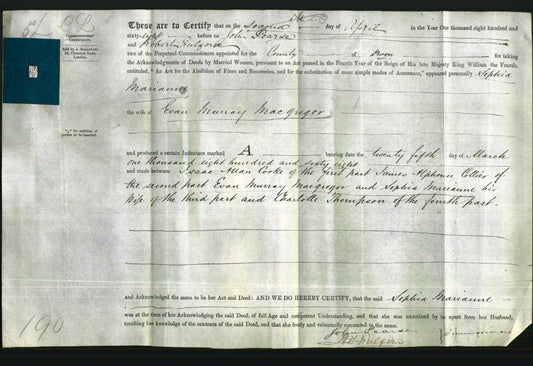 COMMISSIONERS'
CERTIFICATE.
London.
These are to Certify that on the Second day of April in the Year One thousand eight hundred and
sixty-eight before us John Pearse
and Robert Fulford
two of the Perpetual Commissioners appointed for the County of Devon for taking
the Acknowledgments of Deeds by Married Women, pursuant to an Act passed in the Fourth Year of the Reign of His late Majesty King William the Fourth,
entitled, "An Act for the Abolition of Fines and Recoveries, and for the substitution of more simple modes of Assurance," appeared personally Sophia
Marianne
the wife of Evan Murray Macgregor
and produced a certain Indenture marked A bearing date the twenty fifth day of March
one thousand eight hundred and sixty eight
and made between Isaac Allan Cooke of the first part James Alphonse Collier of
the second part Evan Murray Macgregor and Sophia Marianne his
wife of the third part and Charlotte Thompson of the fourth part.
and Acknowledged the same to be her Act and Deed: AND WE DO HEREBY CERTIFY, that the said Sophia Marianne
was at the time of her Acknowledging the said Deed, of full Age and competent Understanding, and that she was examined by us apart from her Husband,
touching her knowledge of the contents of the said Deed, and that she freely and voluntarily consented to the same.
John Pearse
190